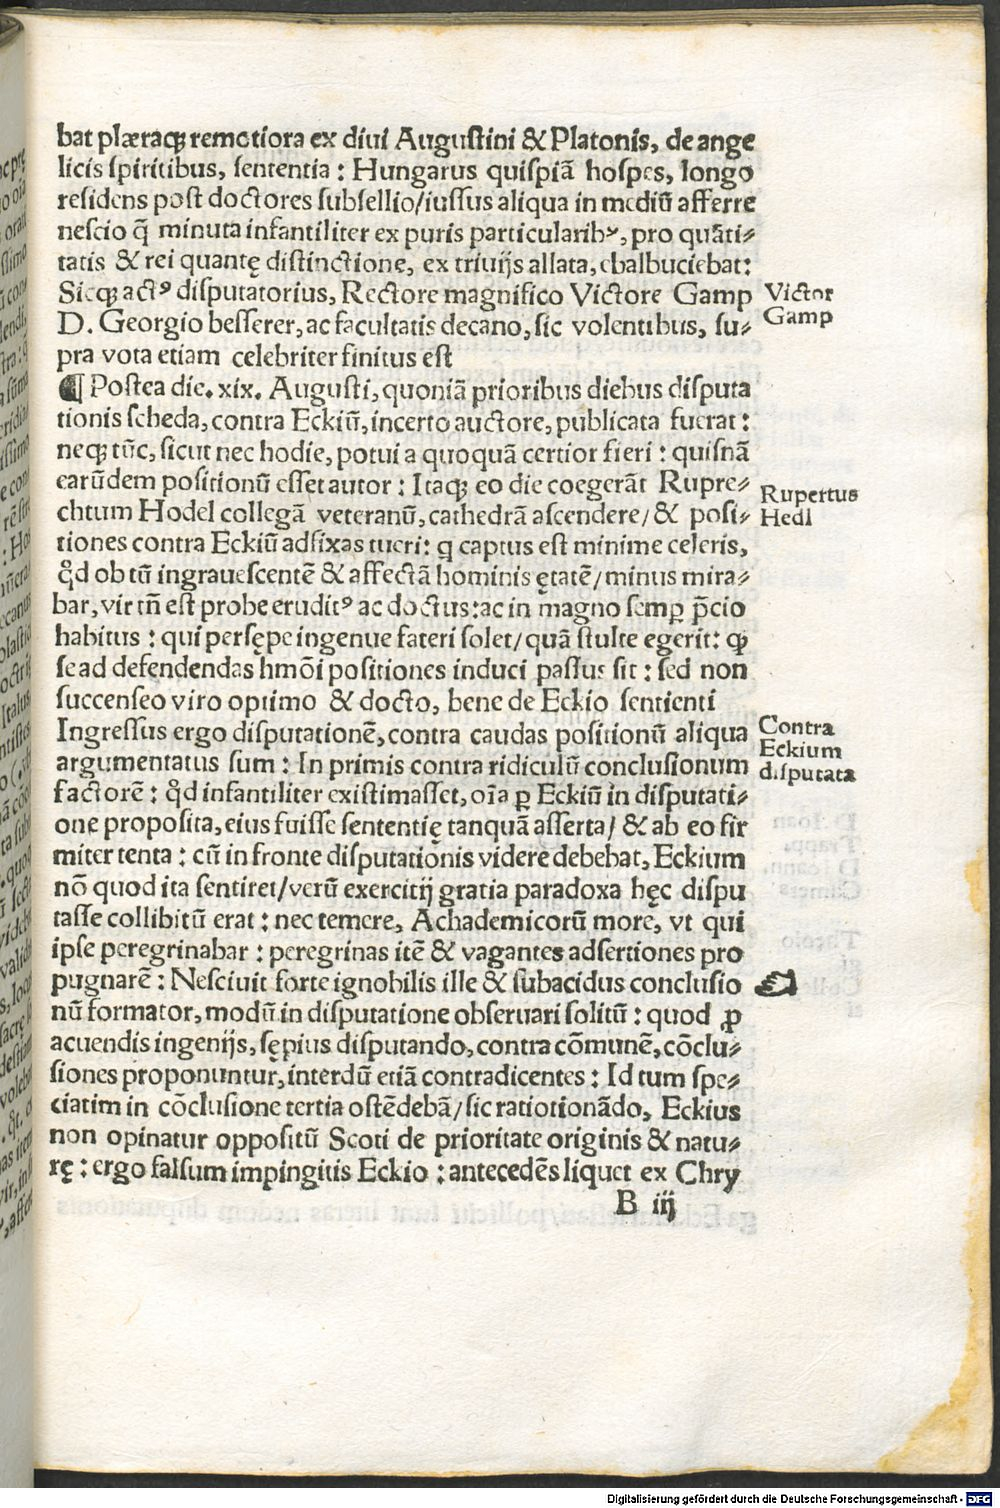 bat plæraqꝫ remotiora ex diui Augustini & Platonis, de ange
licis spiritibus, sententia : Hungarus quispiā hospes, longo
residens post doctores subsellio/iussus aliqua in mediū afferre
nescio q̄ minuta infantiliter ex puris particularibꝰ, pro quāti⸗
tatis & rei quantę distinctione, ex triuijs allata, ebalbuciebat:
Sicqꝫ actꝰ disputatorius, Rectore magnifico Victore Gamp
D. Georgio besserer, ac facultatis decano, sic volentibus, su⸗
pra vota etiam celebriter finitus est
Victor
Gamp
¶ Postea die. xix. Augusti, quoniā prioribus diebus disputa
tionis scheda, contra Eckiū, incerto auctore, publicata fuerat :
neqꝫ tūc, sicut nec hodie, potui a quoquā certior fieri : quisnā
earūdem positionū esset autor : Itaqꝫ eo die coegerāt Rupre⸗
chtum Hodel collegā veteranū, cathedrā ascendere/& posi⸗
tiones contra Eckiū adfixas tueri: q captus est minime celeris,
qd̛ ob tū ingrauescentē & affectā hominis ętatē/minus mira⸗
bar, vir tn̄ est probe eruditꝰ ac doctus:ac in magno semꝑ p̄cio
habitus : qui persępe ingenue fateri solet/quā stulte egerit: qꝫ
se ad defendendas hmōi positiones induci passus sit : sed non
succenseo viro optimo & docto, bene de Eckio sentienti
Rupertus
Hedl
Ingressus ergo disputationē, contra caudas positionū aliqua
argumentatus sum : In primis contra ridiculū conclusionum
factorē : qd̛ infantiliter existimasset, oīa ꝑ Eckiū in disputati⸗
one proposita, eius fuisse sententię tanquā asserta/& ab eo fir
miter tenta : cū in fronte disputationis videre debebat, Eckium
nō quod ita sentiret/verū exercitij gratia paradoxa hęc dispu
tasse collibitū erat : nec temere, Achademicorū more, vt qui
ipse peregrinabar : peregrinas itē & vagantes adsertiones pro
pugnarē : Nesciuit forte ignobilis ille & subacidus conclusio
nū formator, modū in disputatione obseruari solitū : quod ꝓ
acuendis ingenijs, sępius disputando, contra cōmunē, cōclu⸗
siones proponuntur, interdū etiā contradicentes : Id tum spe⸗
ciatim in cōclusione tertia ostēdebā/sic ratiotionādo, Eckius
non opinatur oppositū Scoti de prioritate originis & natu⸗
rę : ergo falsum impingitis Eckio : antecedēs liquet ex Chry
Contra
Eckium
disputata
B iij
Digitalisierung gefördert durch die Deutsche Forschungsgemeinschaft - DFG